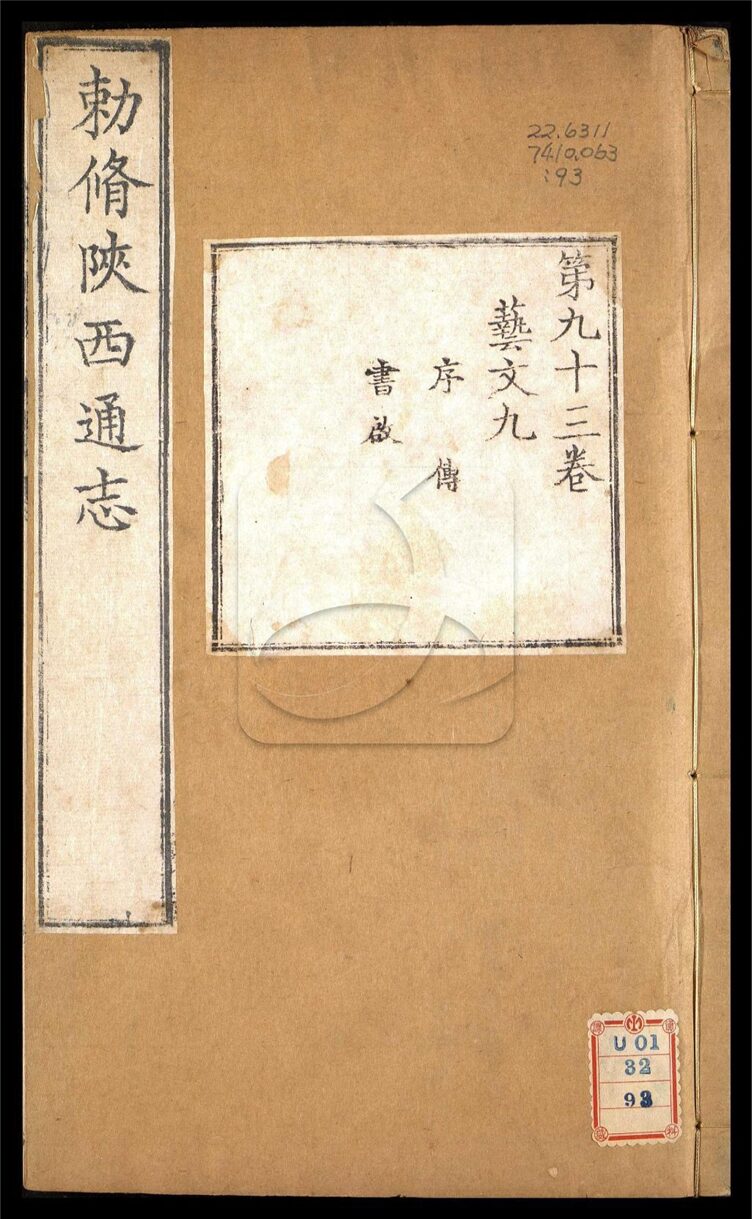 勅脩陝西通志
第九十三卷
藝文九
序 傳
書啟
22.6311
7410.063
:93
U 01
32
93